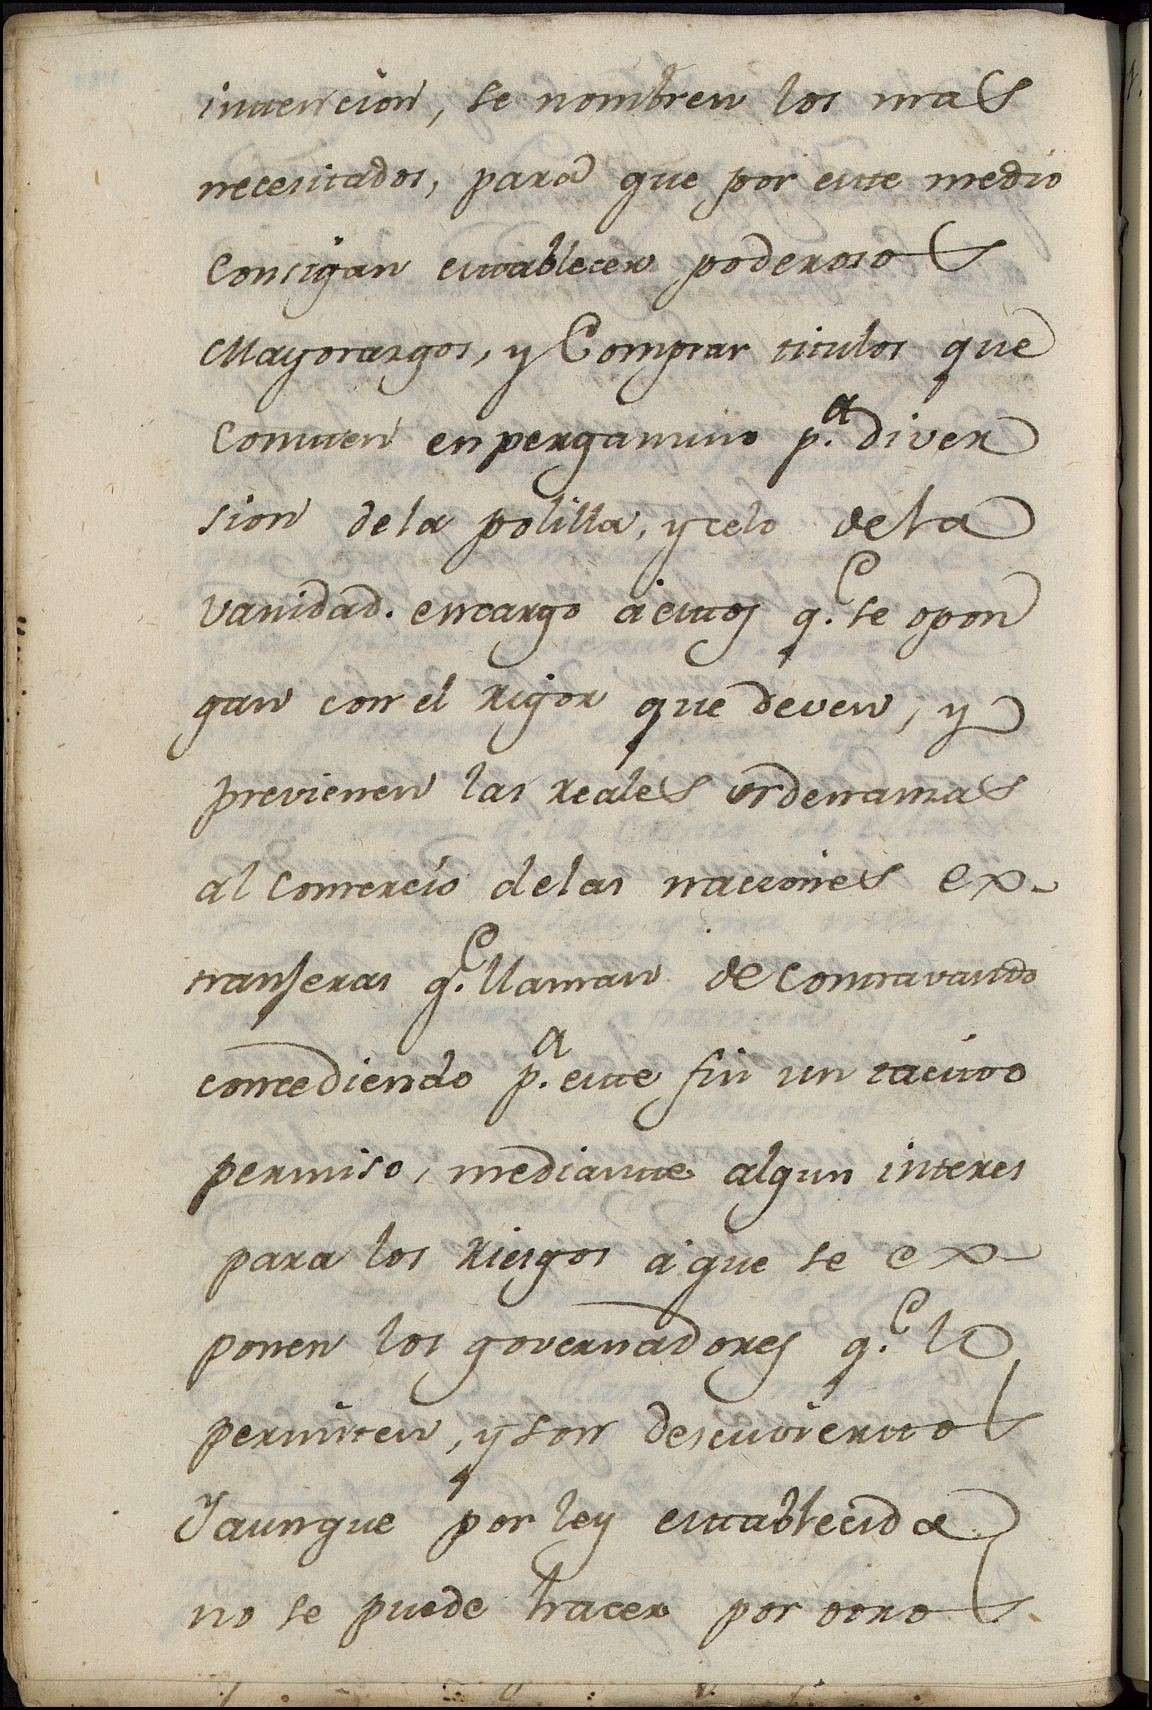 intencion, se nombren los mas
necesitados, para que por este medio
Consigan establecer poderosos
Mayorazgos, y Comprar titulos que
Consten en pergamino p.a diver
sion de la polilla, y celo de la
vanidad. encargo á estos q.e se opon
gan con el rigor que deven, y
previenen las reales ordenanzas
al comercio de las naciones ex-
tranjeras q.e llaman de Contravando
concediendo p.a este fin un tacito
permiso, mediante algun interes
para los riesgos á que se ex-
ponen los governadores q.e lo
permiten, y son descuviertos
Y aunque por ley establecida
no se puede hacer por otros